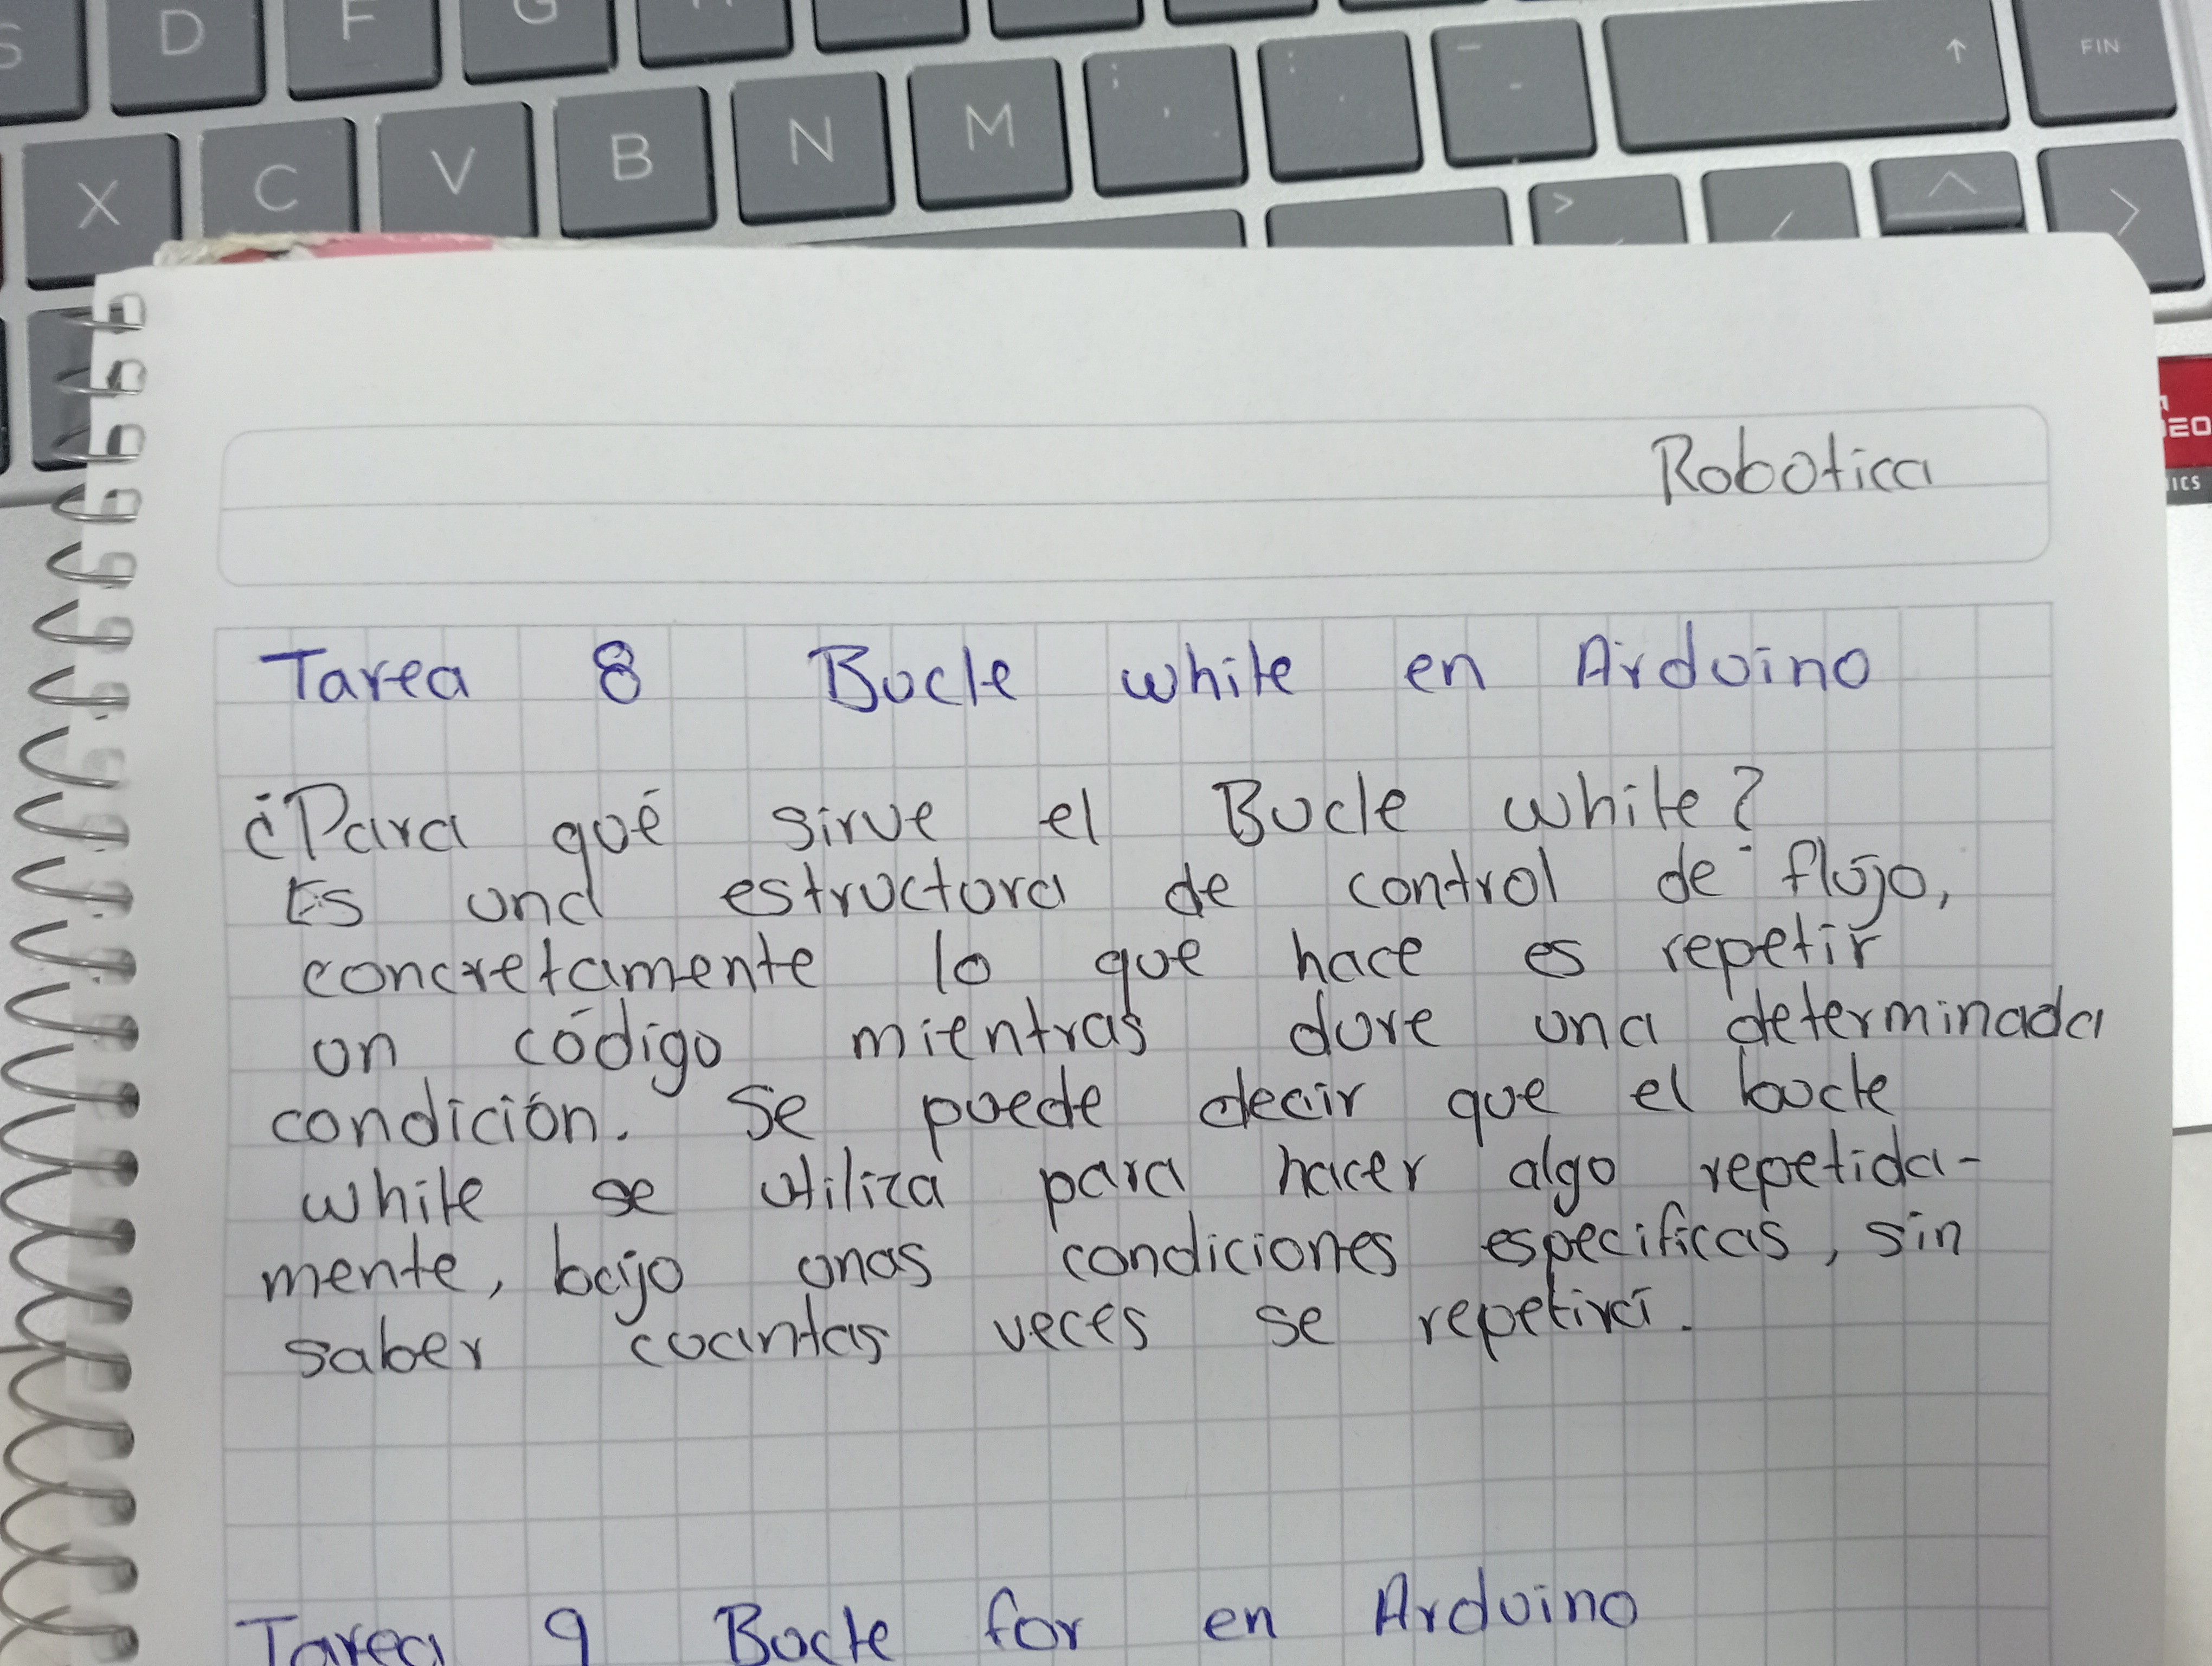 S D F G
FIN
X C V B N M
Robotica
Tarea 8 Bucle while en Arduino
¿Para qué sirve el Bucle while?
Es una estructura de control de flujo,
concretamente lo que hace es repetir
un código mientras dure una determinada
condición. Se puede decir que el bucle
while se utiliza para hacer algo repetida-
mente, bajo unas condiciones especificas, sin
saber cuantas veces se repetirá.
Tarea 9 Bucle for en Arduino